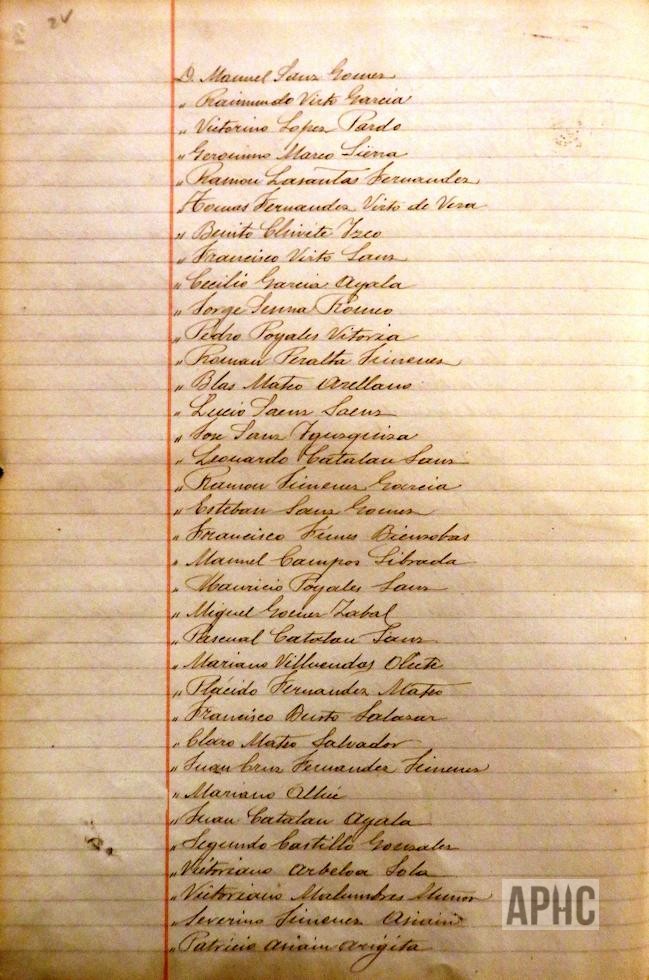 2V
D. Manuel Sanz Gomez
" Raimundo Virto Garcia
" Victorino Lopez Pardo
" Geronimo Marco Sierra
" Ramon Lasantas Fernandez
Tomas Fernandez Virto de Vera
" Benito Chivite Yzco
" Francisco Virto Sanz
" Cecilio Garcia Ayala
" Jorge Romeo
" Pedro Poyales Vitoria
" Roman Peralta Jimenez
" Blas Mateo Arellano
" Lucio Saenz Saenz
" Jose Sanz Yguzquiza
" Leonardo Catalan Sanz
" Ramon Jimenez Garcia
" Esteban Sanz Gomez
" Francisco Bienzobas
" Manuel Campos Librada
" Mauricio Poyales Sanz
" Miguel Gomez Zabal
" Pascual Catalan Sanz
" Mariano Villuendas Olcite
" Plácido Fernandez Mateo
" Francisco Salazar
" Claro Mateo Salvador
" Juan Cruz Fernandez Jimenez
" Mariano Allué
" Juan Catalan Ayala
" Segundo Castillo Gonzalez
" Victoriano Arbeloa Sola
" Victoriano Malumbres Muñoz
" Severino Jimenez Asiain
" Patricio Asiain Arigita
APHC